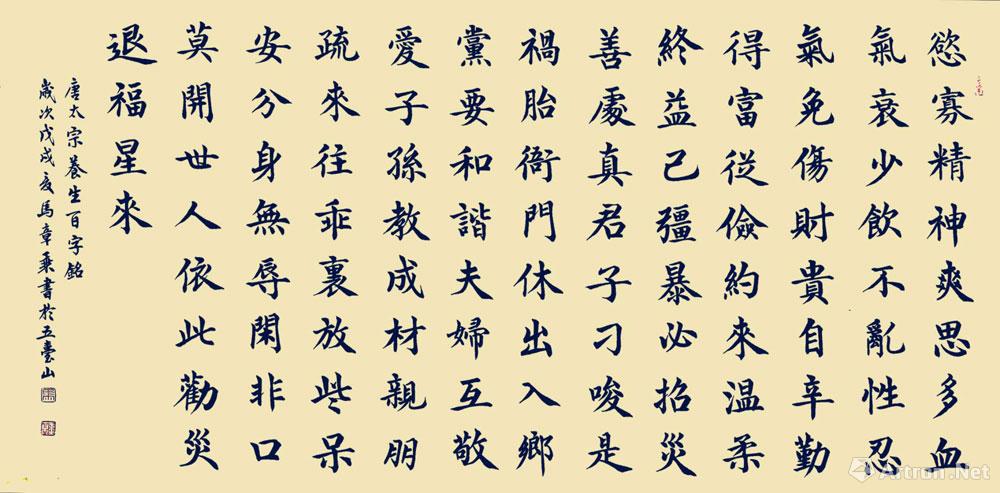 慾寡精神爽思多血
氣衰少飲不亂性忍
氣免傷財貴自辛勤
得富從儉約來温柔
終益己彊暴必招災
善處真君子刁唆是
禍胎衙門休出入鄉
黨要和諧夫婦互敬
愛子孫教成材親朋
疏來往乖裏放些呆
安分身無辱閑非口
莫開世人依此勸災
退福星來
唐太宗養生百字銘
歲次戊戌夏馬章乘書於五臺山
Artron.Net